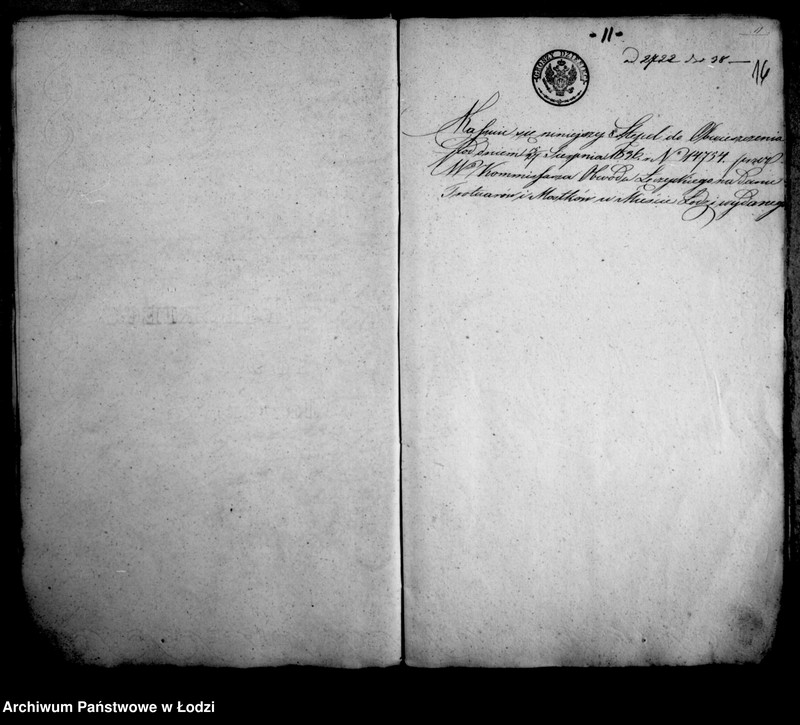 11
- 11 -
ad 2722 do 38
16
GROSZY DZIESIĘĆ
Kassuie się niniejszy Stępel do Obwieszczenia
pod dniem Sierpnia N 14734. przez
W Kommissarza Obwodu Łęczyckiego na
Trotuarów i Mostków w Mieście Łodzi wydanego
Archiwum Państwowe w Łodzi